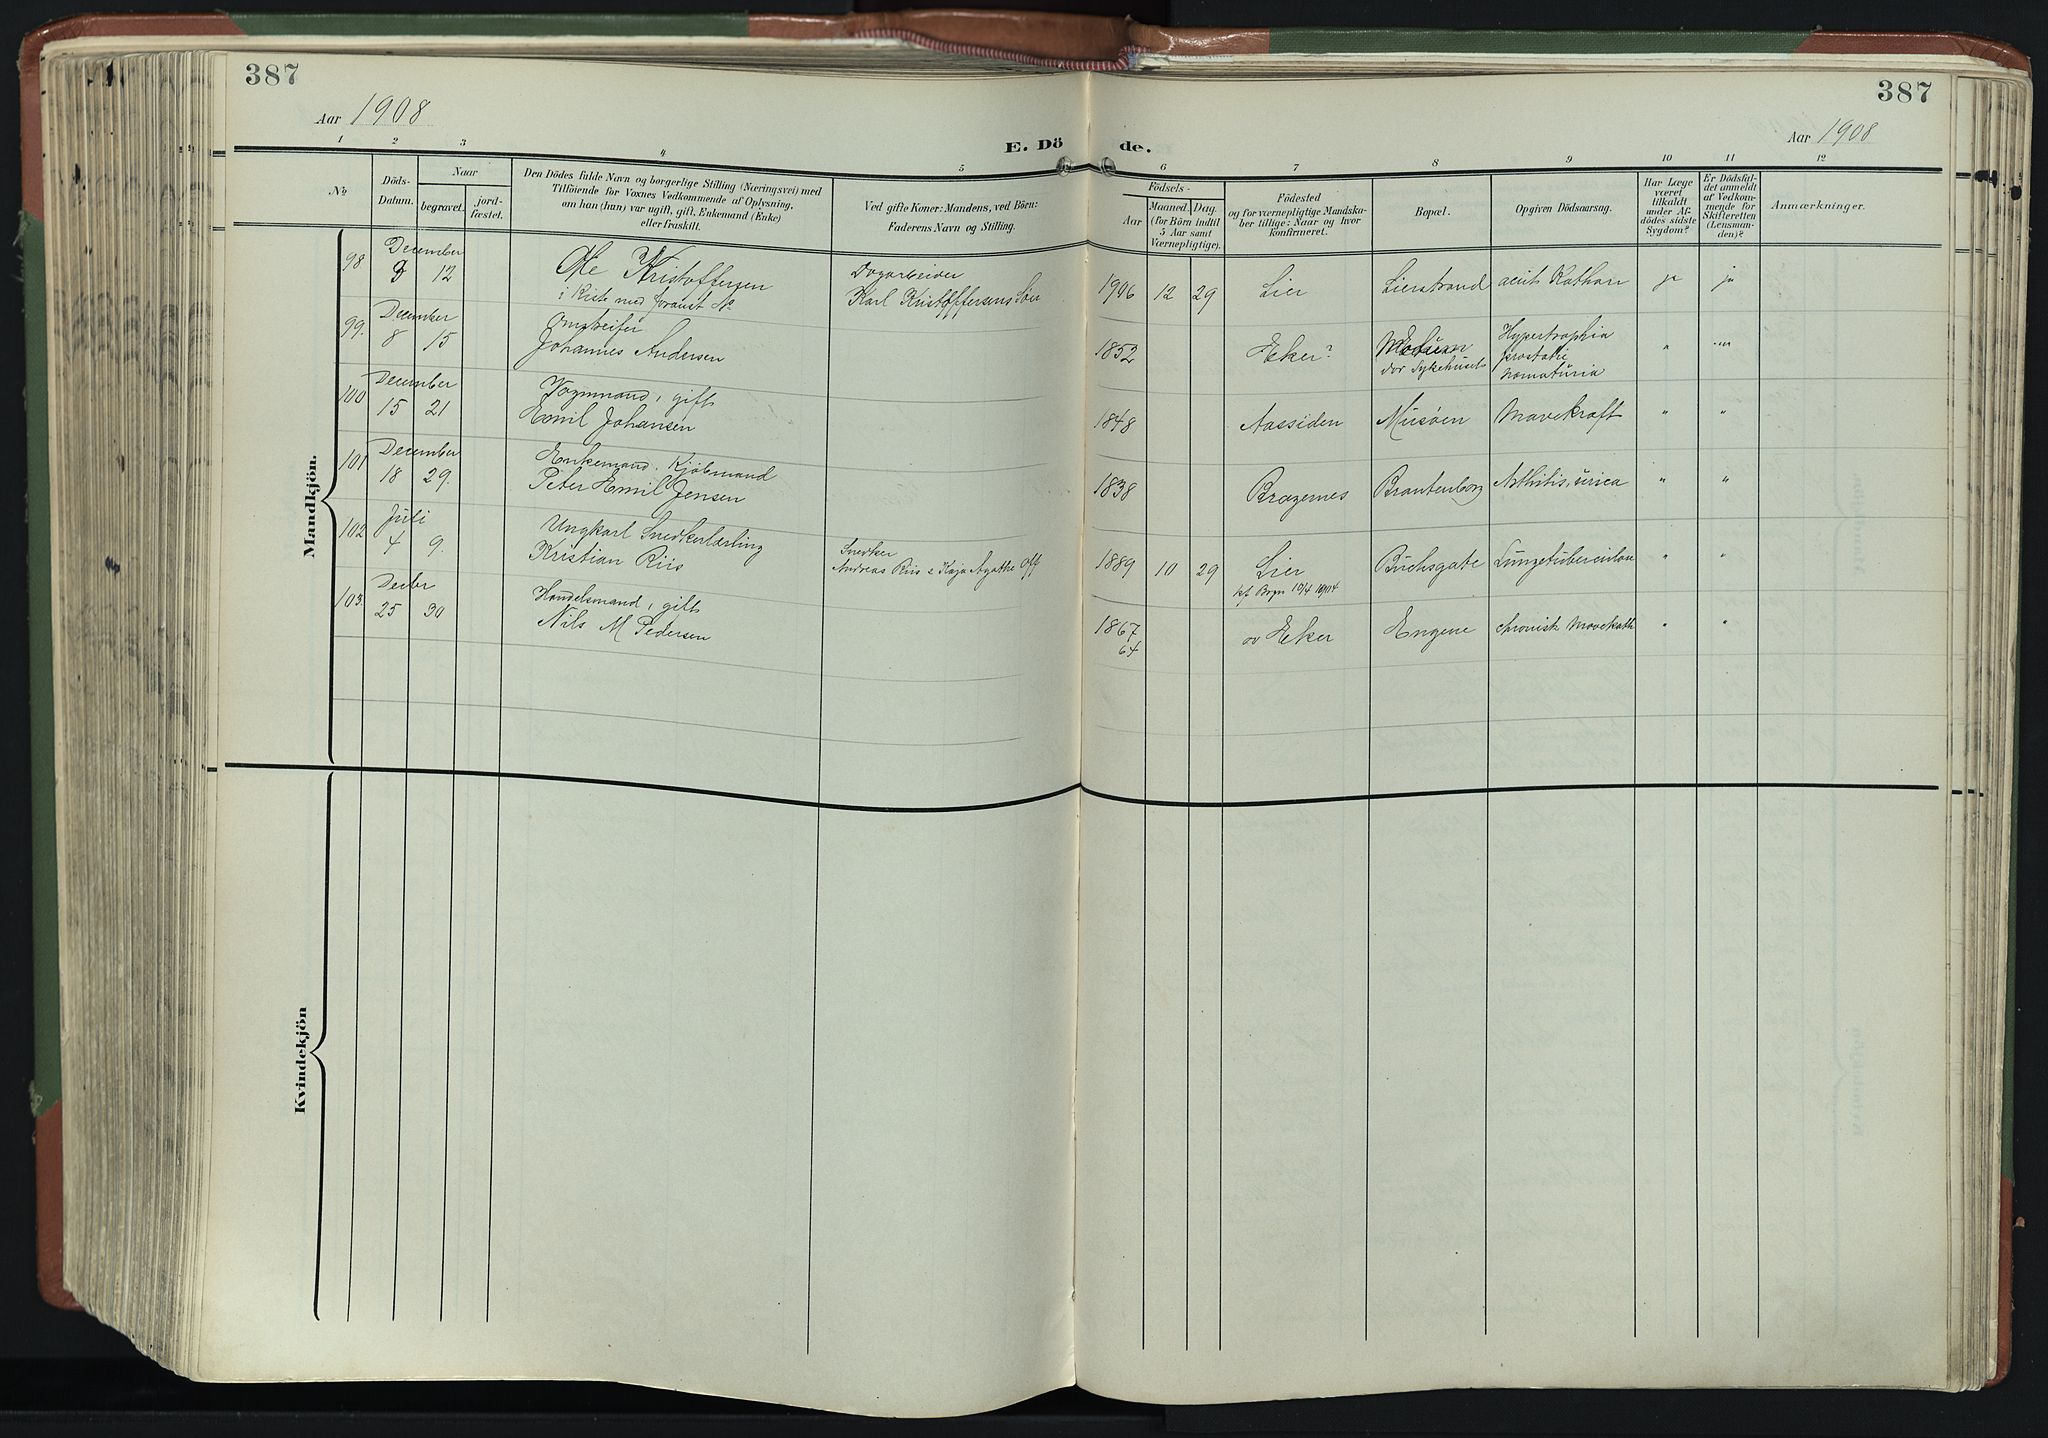 387
387
Aar 1908
Aar 1908
E. Dö de.
1 2 3 4 5 6 7 8 9 10 11 12
No
Döds-
Datum.
Naar
begravet.
jord-
fæstet.
Den Dödes fulde Navn og borgerlige Stilling (Næringsvei) med
Tilföiende for Voxnes Vedkommende af Oplysning,
om han (hun) var ugift, gift, Enkemand (Enke)
eller fraskilt.
Ved gifte Koner: Mandens, ved Börn:
Faderens Navn og Stilling.
Födsels-
Aar
Maaned.
Dag.
(for Börn indtil
5 Aar samt
Værnepligtige).
Födested
og for værnepligtige Mandska-
ber tillige: Naar og hvor
konfirmeret.
Bopæl.
Opgiven Dödsaarsag.
Har Læge
været
tilkaldt
under Af-
dödes sidste
Sygdom?
Er Dödsfal-
det anmeldt
af Vedkom-
mende for
Skifteretten
(Lensman-
den)?
Anmærkninger.
Mandkjön.
98 December
8 12
Ole Kristoffersen
i Kiste med foranst. No
Dagarbeider
Karl Kristoffersens Søn
1906 12 29 Lier Lierstrand acut Kathar ja ja
99. December
8 15
Omstreifer
Johannes Andersen
1852 Eker?
Modum
dør Sykehuset
Hypertrophia
prostatæ
" "
100 December
15 21
Vognmand, gift
Emil Johansen
1848 Aassiden Musøen Mavekræft " "
101 December
18 29.
Enkemand. Kjøbmand
Peter Emil Jensen
1838 Bragernes Brantenborg Arthritis, urica " "
102 Juli
4 9.
Ungkarl Snedkerlærling
Kristian Riis
Snedker
Andreas Riis & Kaja Agathe Off
1889 10 29 Lier Buchsgate Lungetuberculose " "
103. Decbr
25 30
Handelsmand, gift
Nils M Pedersen
1867
64
øv Eker Engene chronisk Mavekath " "
Kvindekjön